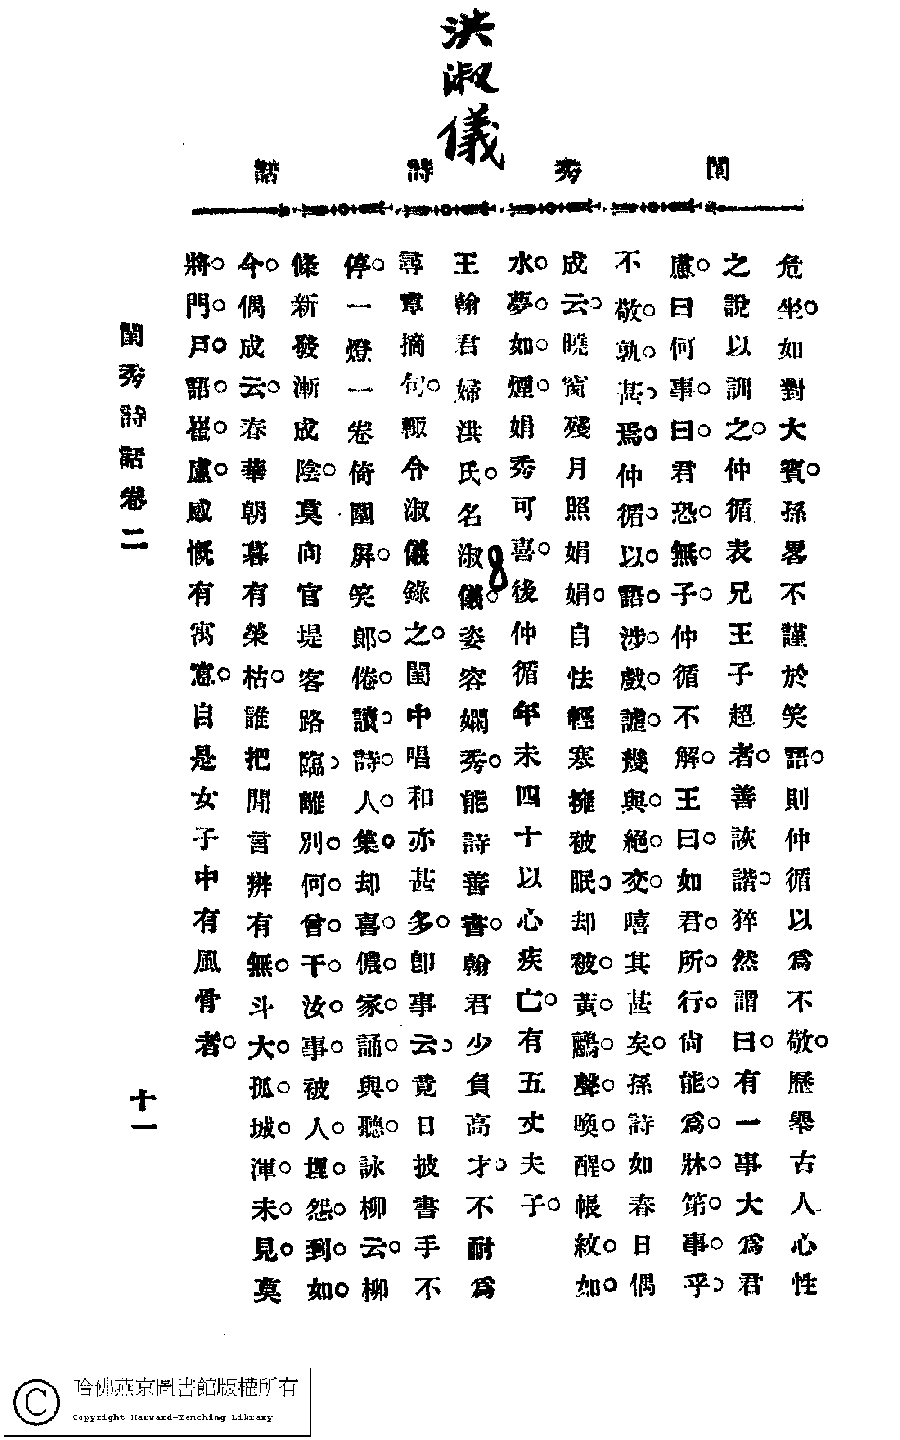 洪淑儀
閨秀詩話
危坐。如對大賓。孫畧不謹於笑語。則仲循以為不敬。歷舉古人心性
之說以訓之。仲循表兄王子超者。善詼諧。猝然謂曰。有一事大為君
慮。曰何事。曰。君恐。無。子。仲循不解。王曰。如君。所。行。尙能。為。牀。第。事。乎。
不敬。孰。甚。焉。仲循。以。語。涉。戲。謔。幾與。絕。交。嘻其甚矣。孫詩如春日偶
成云。曉窗殘月照娟娟。自怯輕寒擁被眠。却被。黃。鸝。聲。喚。醒。帳紋。如。
水。夢。如。煙。娟秀可喜。後仲循年未四十以心疾亡。有五丈夫子。
8
王翰君婦洪氏。名淑儀。姿容嫻秀。能詩善書。翰君少負高才。不耐為
尋章摘句。輙令淑儀錄之。閨中唱和亦甚多。卽事云。竟日披書手不
停。一燈一卷倚圍屏。笑郞。倦。讀。詩。人。集。却喜。儂。家。誦。與。聽。詠柳云。柳
條新發漸成陰。莫向官堤客路臨。離別。何。曾。干。汝。事。被人。埋。怨。到。如。
今。偶成云。春華朝暮有榮枯。誰把閒言辨有無。斗大。孤。城。渾未。見。莫
將。門。戶。語。崔。盧。感慨有寓意。自是女子中有風骨者。
閨秀詩話卷二
十一
哈佛燕京圖書館版權所有
Copyright Harvard-Yenching Library